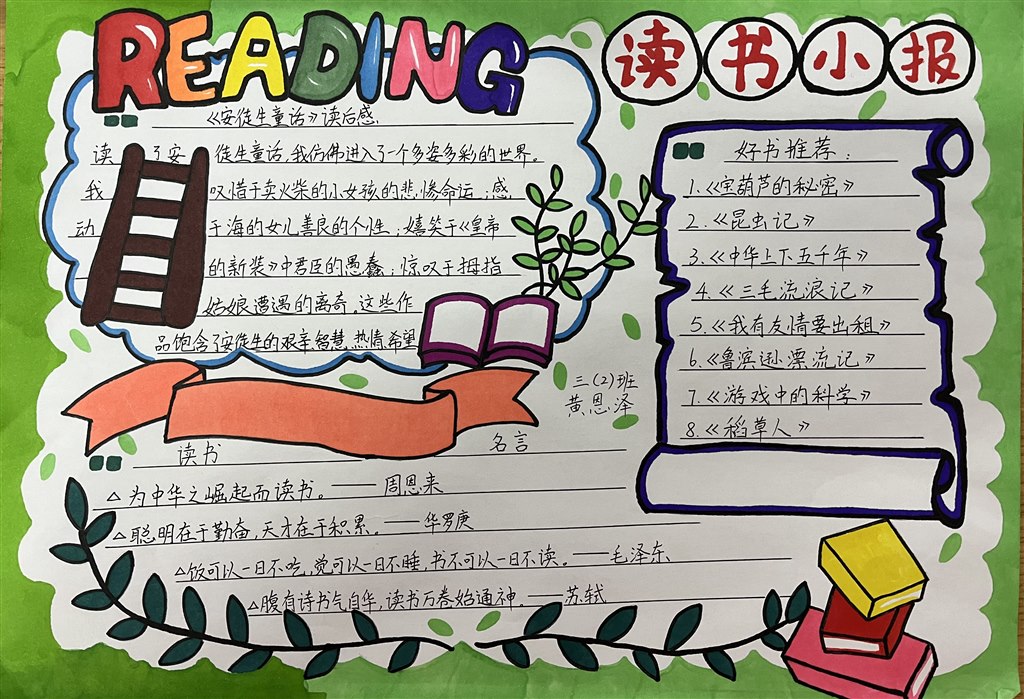 READING
读书小报
《安徒生童话》读后感
读了安徒生童话,我仿佛进入了一个多姿多彩的世界。
我叹惜于卖火柴的小女孩的悲惨命运;感
动于海的女儿善良的个性;嬉笑于《皇帝
的新装》中君臣的愚蠢;惊叹于拇指
姑娘遭遇的离奇。这些作
品饱含了安徒生的艰辛智慧,热情希望
好书推荐:
1.《宝葫芦的秘密》
2.《昆虫记》
3.《中华上下五千年》
4.《三毛流浪记》
5.《我有友情要出租》
6.《鲁滨逊漂流记》
7.《游戏中的科学》
8.《稻草人》
三(2)班
黄恩泽
读书 名言
△为中华之崛起而读书。——周恩来
△聪明在于勤奋,天才在于积累。——华罗庚
△饭可以一日不吃,觉可以一日不睡,书不可以一日不读。——毛泽东
△腹有诗书气自华,读书万卷始通神。——苏轼